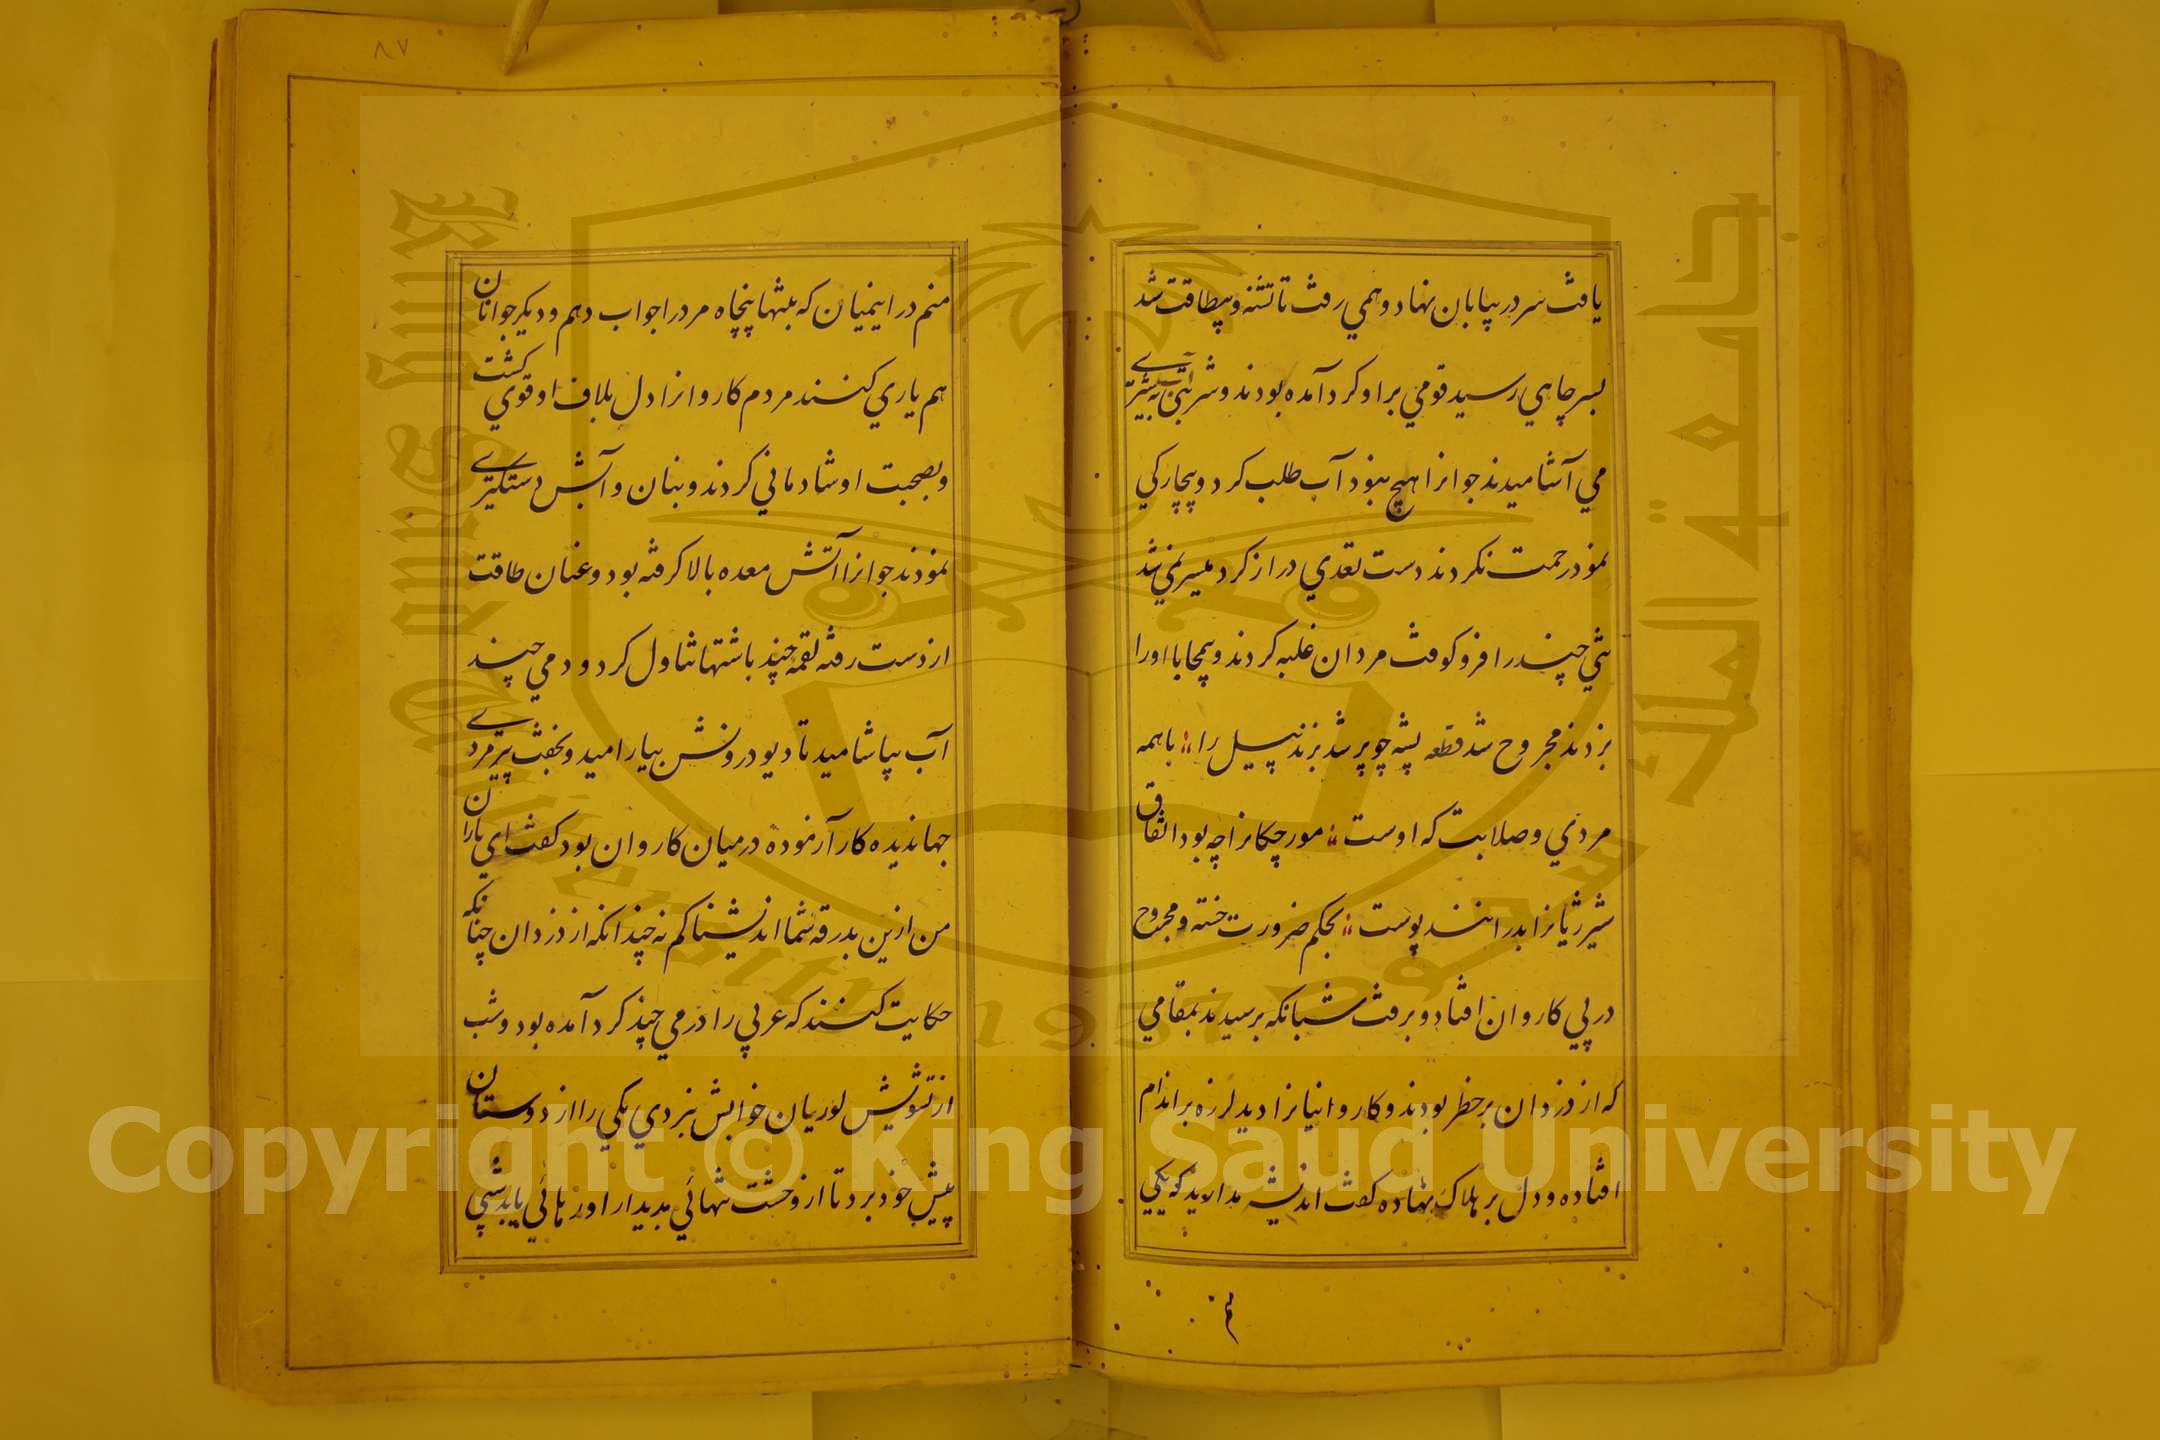 یافت سر در بیابان نهاد و همی رفت تا تشنه و بیطاقت شد
بسر چاهی رسید قومی بر او گرد آمده بودند و شربتی آب به پشیزی
می آشامیدند جوانرا هیچ نبود آب طلب کرد و بیچارگی
نمود رحمت نکردند دست تعدی دراز کرد میسر نمی شد
تنی چند را فرو کوفت مردان غلبه کردند و بیمحابا او را
بزدند مجروح شد قطعه پشه چو پر شد بزند پیل را باهمه
مردی و صلابت که اوست مورچگانرا چو بود اتفاق
شیر ژیانرا بدرانند پوست بحکم ضرورت خسته و مجروح
در پی کاروان افتاد و برفت شبانگه برسیدند بمقامی
که از دزدان بر خطر بودند و کاروانیانرا دید لرزه بر اندام
افتاده و دل بر هلاک نهاده گفت اندیشه مدارید که یکی
منم
۸۷
منم در اینمیان که بتنها پنجاه مرد را جواب دهم و دیگر جوانان
هم یاری کنند مردم کاروانرا دل بلاف او قوی گشت
و بصحبت او شادمانی کردند و بنان و آبش دستگیری
نمودند جوانرا آتش معده بالا گرفته بود و عنان طاقت
از دست رفته لقمه چند باشتها تناول کرد و دمی چند
آب بیاشامید تا دیو درونش بیارامید و بخفت پیرمردی
جهاندیده کار آزموده در میان کاروان بود گفت ای یاران
من ازین بدرقه شما اندیشناکم نه چندانکه از دزدان چنانکه
حکایت کنند که عربی را درمی چند گرد آمده بود و شب
از تشویش لوریان خوابش نبردی یکی را از دوستان
پیش خود برد تا از وحشت تنهائی بدیدار او رهائی یابد شبی
Copyright © King Saud University
جامعة الملك سعود
King Saud University
1957